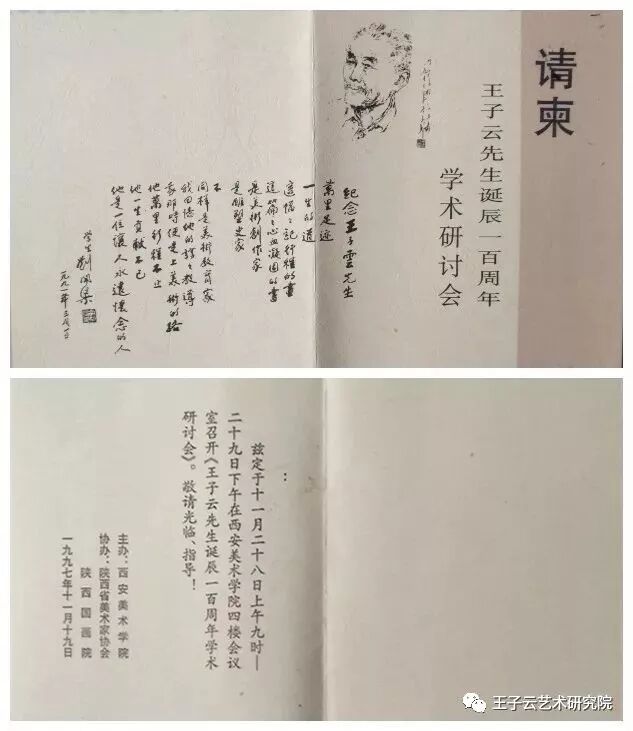 请柬
王子云先生诞辰一百周年
学术研讨会
纪念王子雲先生
萬里足迹
一生的道
記行程的畫
這篇々心血凝固的書
是美術創作家
是雕塑史家
不
同樣是美術教育家
我回憶他的諄々教導
那時便走上美術的路
他萬里行程不止
他一生貢献不已
他是一位讓人永遠懷念的人
学生
一九九一年三月一日
兹定于十一月二十八日上午九时—
二十九日下午在西安美术学院四楼会议
室召开《王子云先生诞辰一百周年学术
研讨会》。敬请光临、指导！
主办：西安美术学院
协办：陕西省美术家协会
陕西国画院
一九九七年十一月十九日
王子云艺术研究院